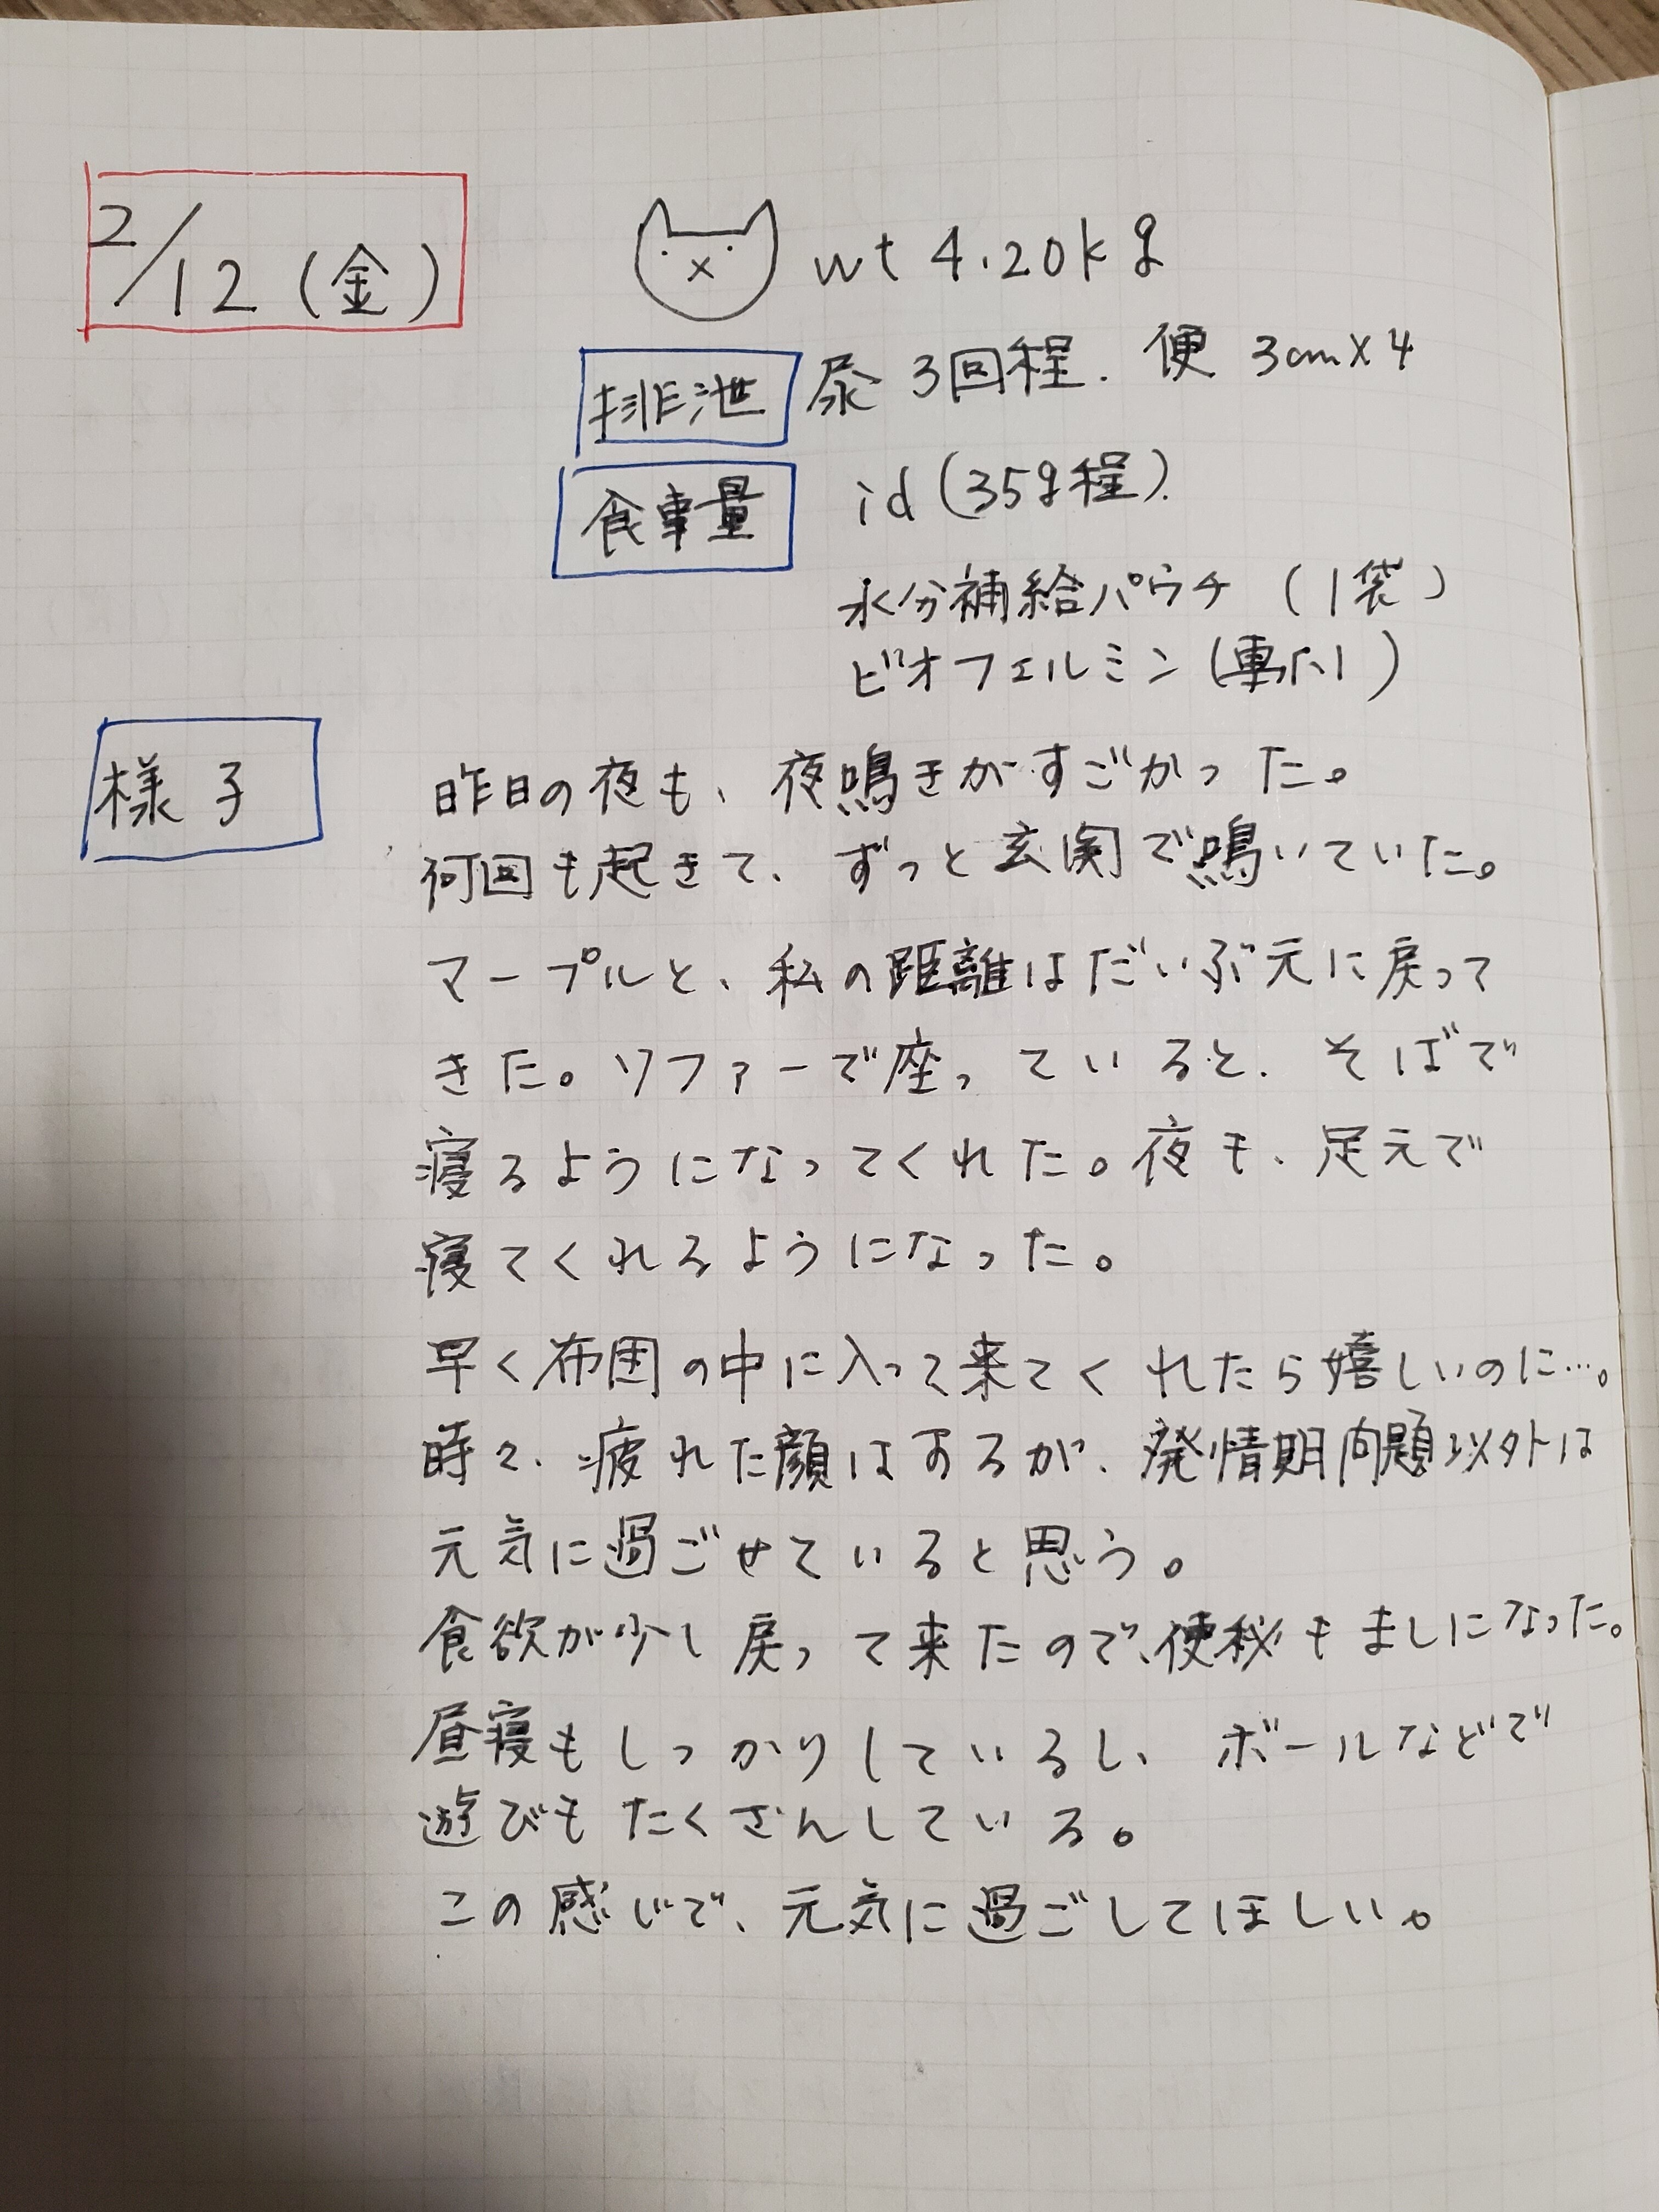 2/12(金)
wt 4.20kg
排泄 尿 3回程. 便 3cm×4
食事量 id(35g程).
水分補給パウチ (1袋)
ビオフェルミン(
様子 昨日の夜も、夜鳴きがすごかった。
何回も起きて、ずっと玄関で鳴いていた。
マープルと、私の距離はだいぶ元に戻って
きた。ソファーで座っていると、そばで
寝るようになってくれた。夜も、足元で
寝てくれるようになった。
早く布団の中に入って来てくれたら嬉しいのに…。
時々、疲れた顔はするが、発情期問題以外は
元気に過ごせていると思う。
食欲が少し戻って来たので、便秘もましになった。
昼寝もしっかりしているし、ボールなどで
遊びもたくさんしている。
この感じで、元気に過ごしてほしい。